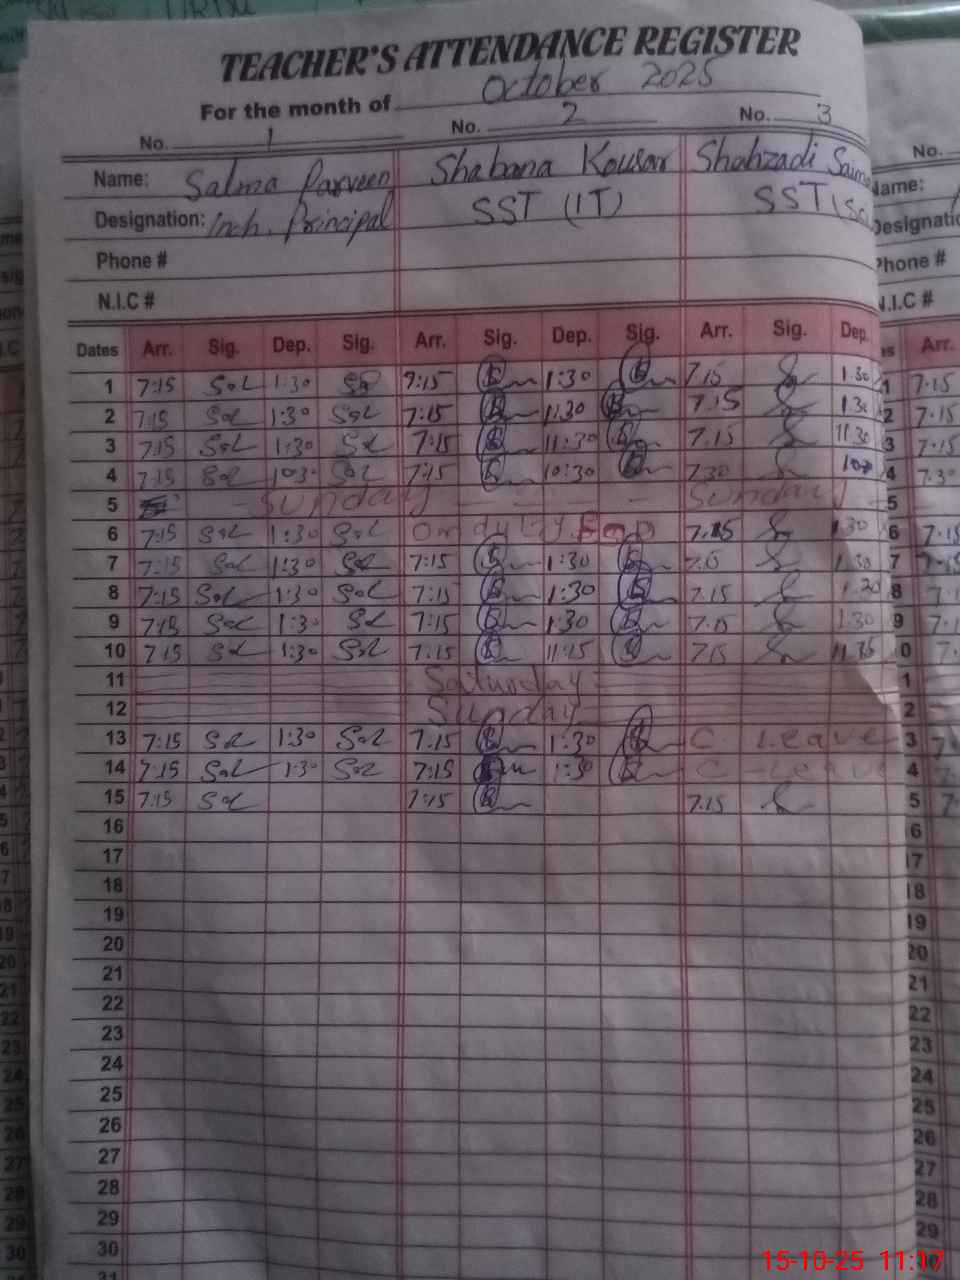 TEACHER'S ATTENDANCE REGISTER
For the month of October 2025
No. 1 No. 2 No. 3 No.
Name: Salma Parveen Shabana Kousar Shahzadi Name:
Designation: Inch. Principal SST (IT) SST Designation
Phone # Phone #
N.I.C #
Dates Arr. Sig. Dep. Sig. Arr. Sig. Dep. Sig. Arr. Sig. Dep. Arr.
1 7:15 Sal 1:30 7:15 1:30 7.15 1.30 7.15
2 7:15 Sal 1:30 Sal 7:15 11.30 7.15 1.30 7.15
3 7:15 Sal 1:30 Sal 7:15 11:30 7.15 11.30 7.15
4 7:15 Sal 10:30 Sal 7:15 10:30 7.30 7.30
5 Sunday Sunday
6 7:15 Sal 1:30 Sal On duty 7.15 1.30 7.15
7 7:15 Sal 1:30 Sal 7:15 1:30 7.15 1.30 7.15
8 7:15 Sal 1:30 Sal 7:15 1:30 7.15 1.30
9 7:15 Sal 1:30 Sal 7:15 1:30 7.15 1.30
10 7:15 Sal 1:30 Sal 7:15 11:15 7.15
11 Saturday
12 Sunday
13 7:15 Sal 1:30 Sal 7:15 1:30 C. Leave
14 7:15 Sal 1:30 Sal 7:15 1:30 C-Leave
15 7:15 Sal 7:15 7.15
16
17
18
19
20
21
22
23
24
25
26
27
28
29
30
31
15-10-25 11:17